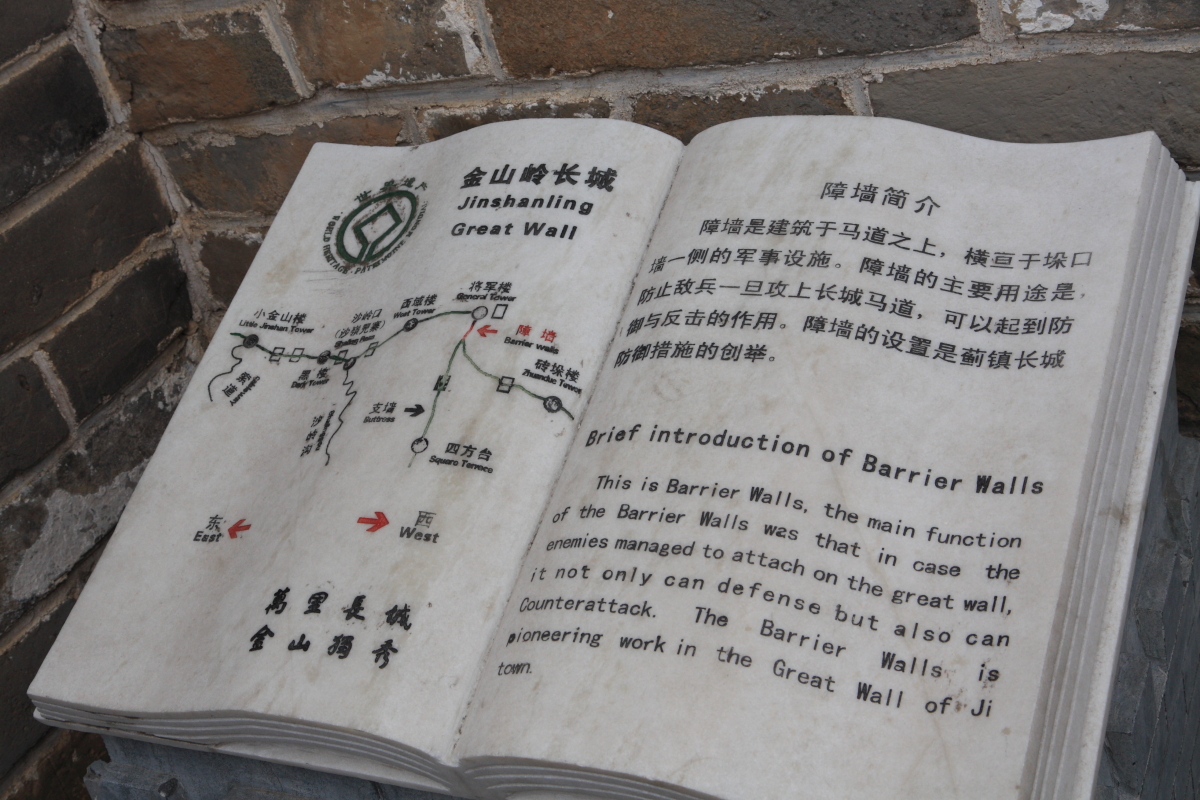 金山岭长城
Jinshanling
Great Wall
将军楼
General Tower
西域楼
West Tower
沙岭口
小金山楼
Little Jinshan Tower
障墙
Barrier walls
黑楼
砖垛楼
Zhuanduo Tower
支墙
Buttress
四方台
Square Terrace
东
East
西
West
萬里長城
金山獨秀
障墙简介
障墙是建筑于马道之上，横亘于垛口
墙一侧的军事设施。障墙的主要用途是，
防止敌兵一旦攻上长城马道，可以起到防
御与反击的作用。障墙的设置是蓟镇长城
防御措施的创举。
Brief introduction of Barrier Walls
This is Barrier Walls, the main function
of the Barrier Walls was that in case the
enemies managed to attach on the great wall,
it not only can defense but also can
Counterattack. The Barrier Walls is
pioneering work in the Great Wall of Ji
town.